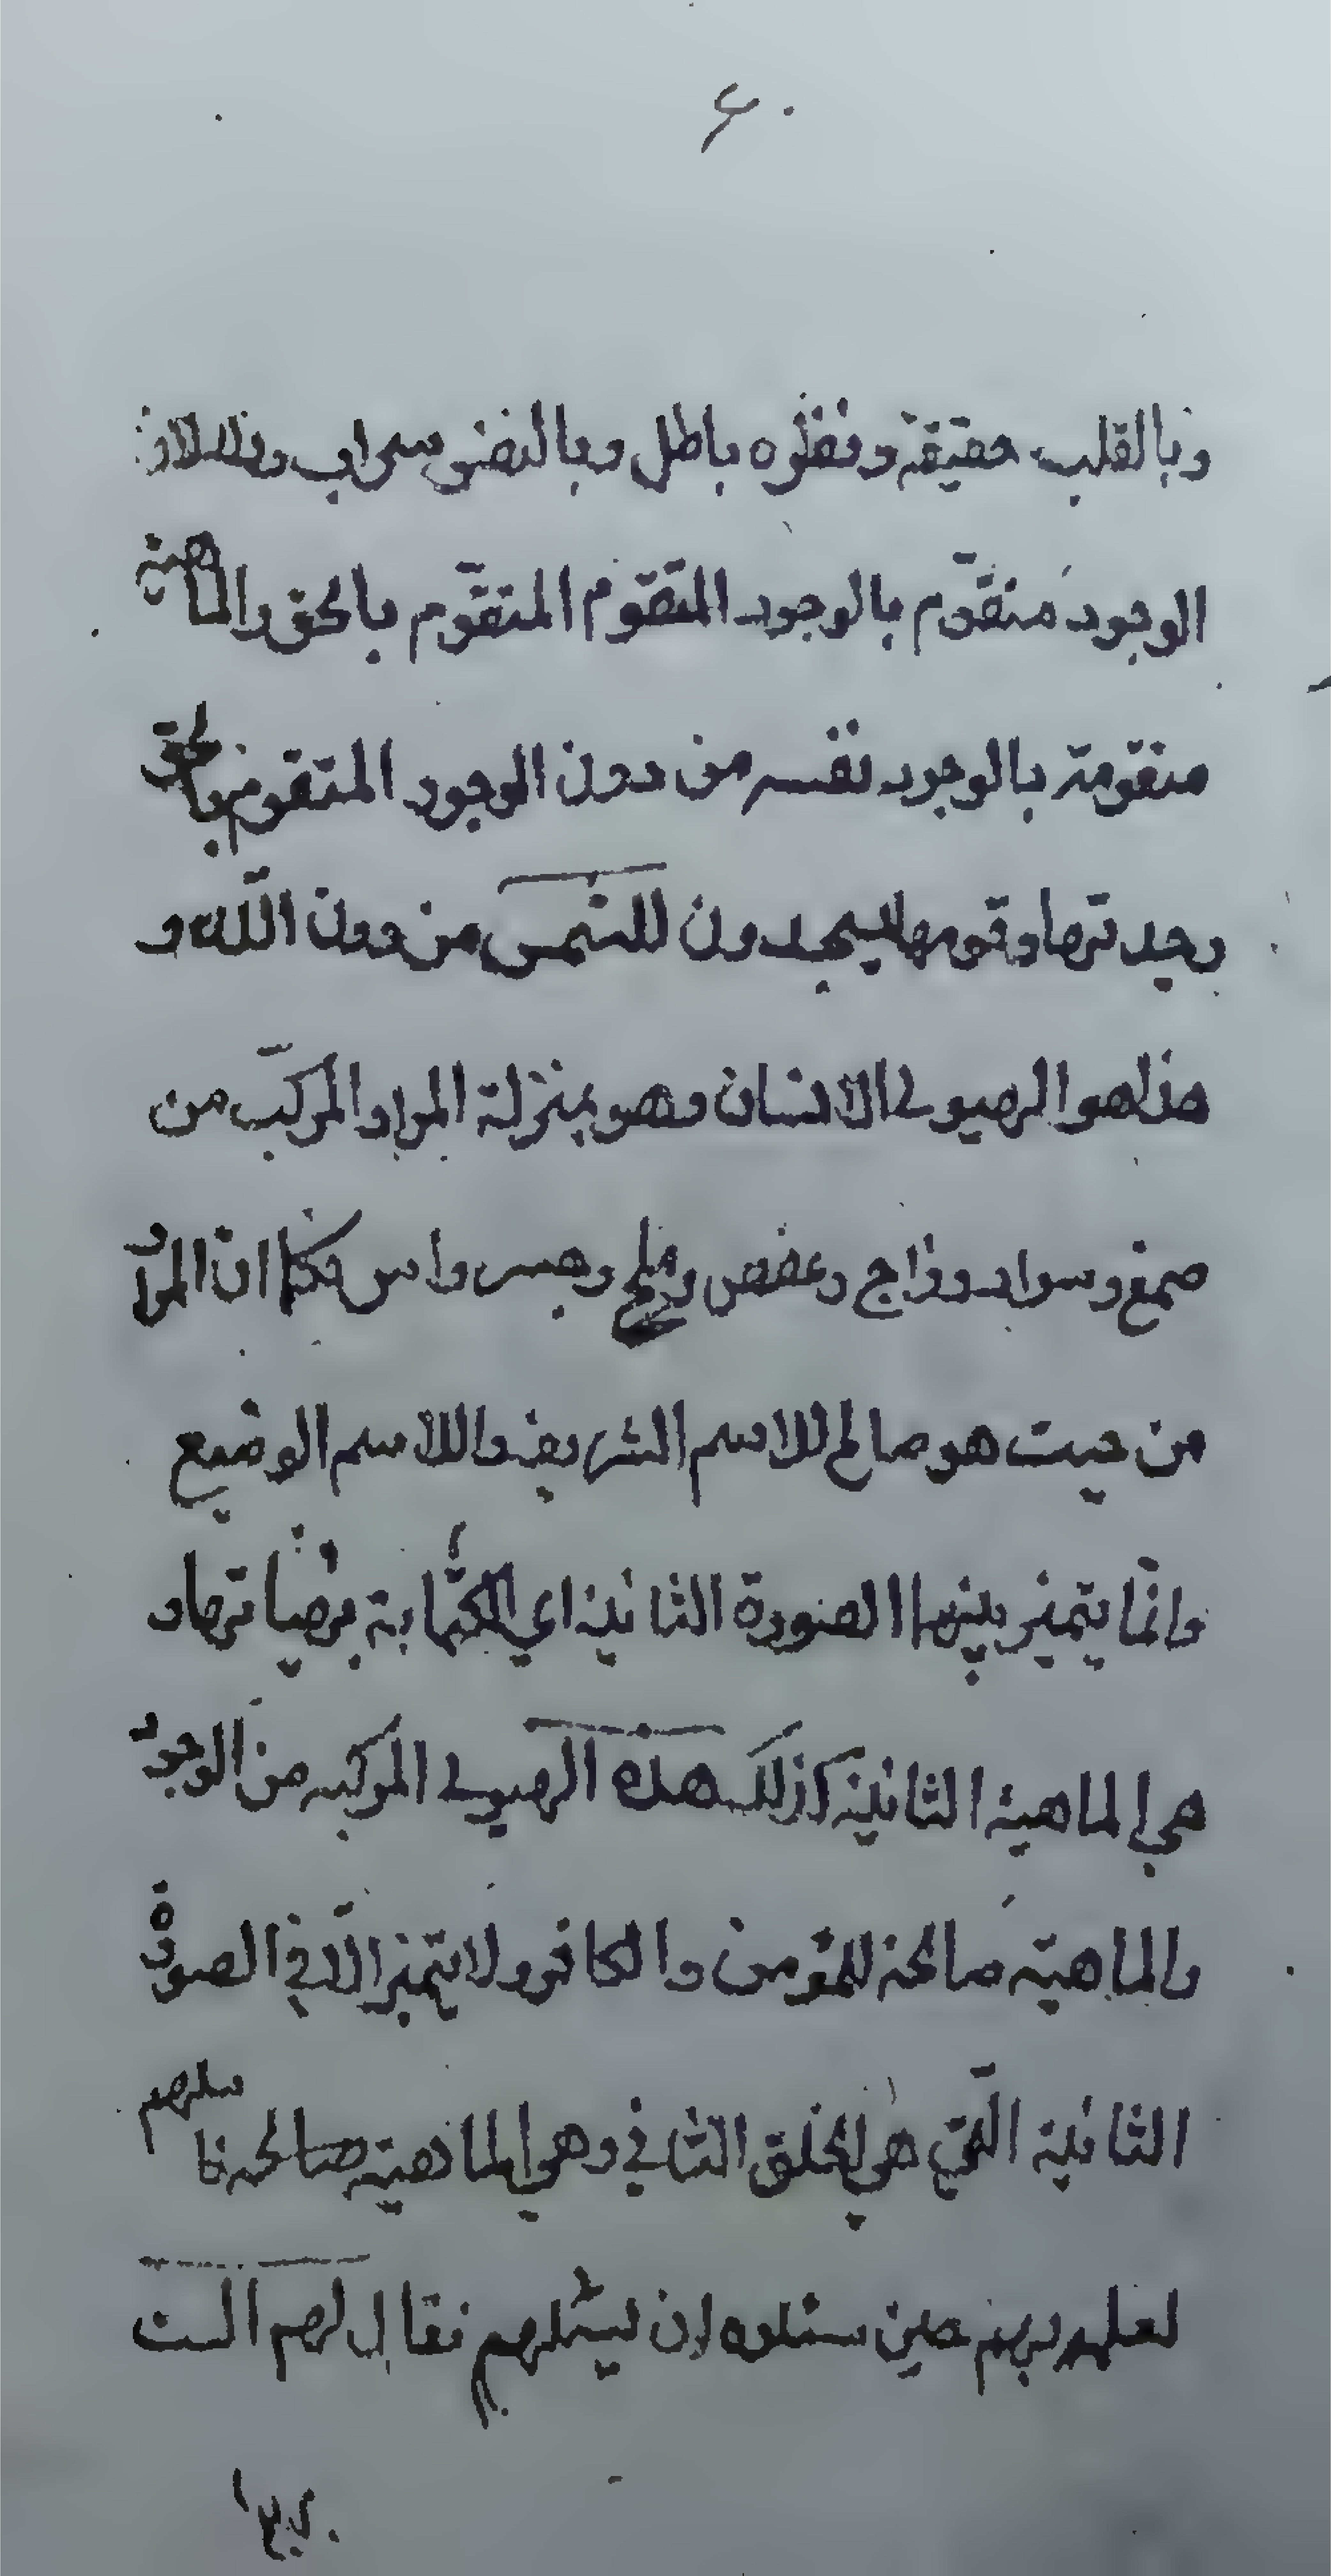 ۶۰
وبالقلب حقيقة ونظره باطل وبالنضو سراب وذلك لان
الوجود متقوّم بالوجود المتقوم المتقوّم بالحق والماهية
متقومة بالوجود نفسه من دون الوجود المتقوم بالحق
وجدتها وقومها يسجدون للشمس من دون اللّه و
هذا هو الهيولى الانسان وهو بمنزلة المداد المركّب من
صمغ وسواد وزاج وعفص وملح وصبر واس فكما انّ المداد
من حيث هو صالح للاسم الشريف واللاسم الوضيع
وانّما يتميز بينهما الصورة الثانية اي الكتابة بهيئاتها و
هي الماهية الثانية كذلك هذه الهيولى المركبه من الوجود
والماهيّة صالحة للمؤمن والكافر ولا يتميز الّا في الصورة
الثانية الّتي هي الخلق الثاني وهي الماهية صالحة فا سئلهم
لعلهم ربهم حين سئلوه ان يسئلهم فقال لهم الست
بربكم